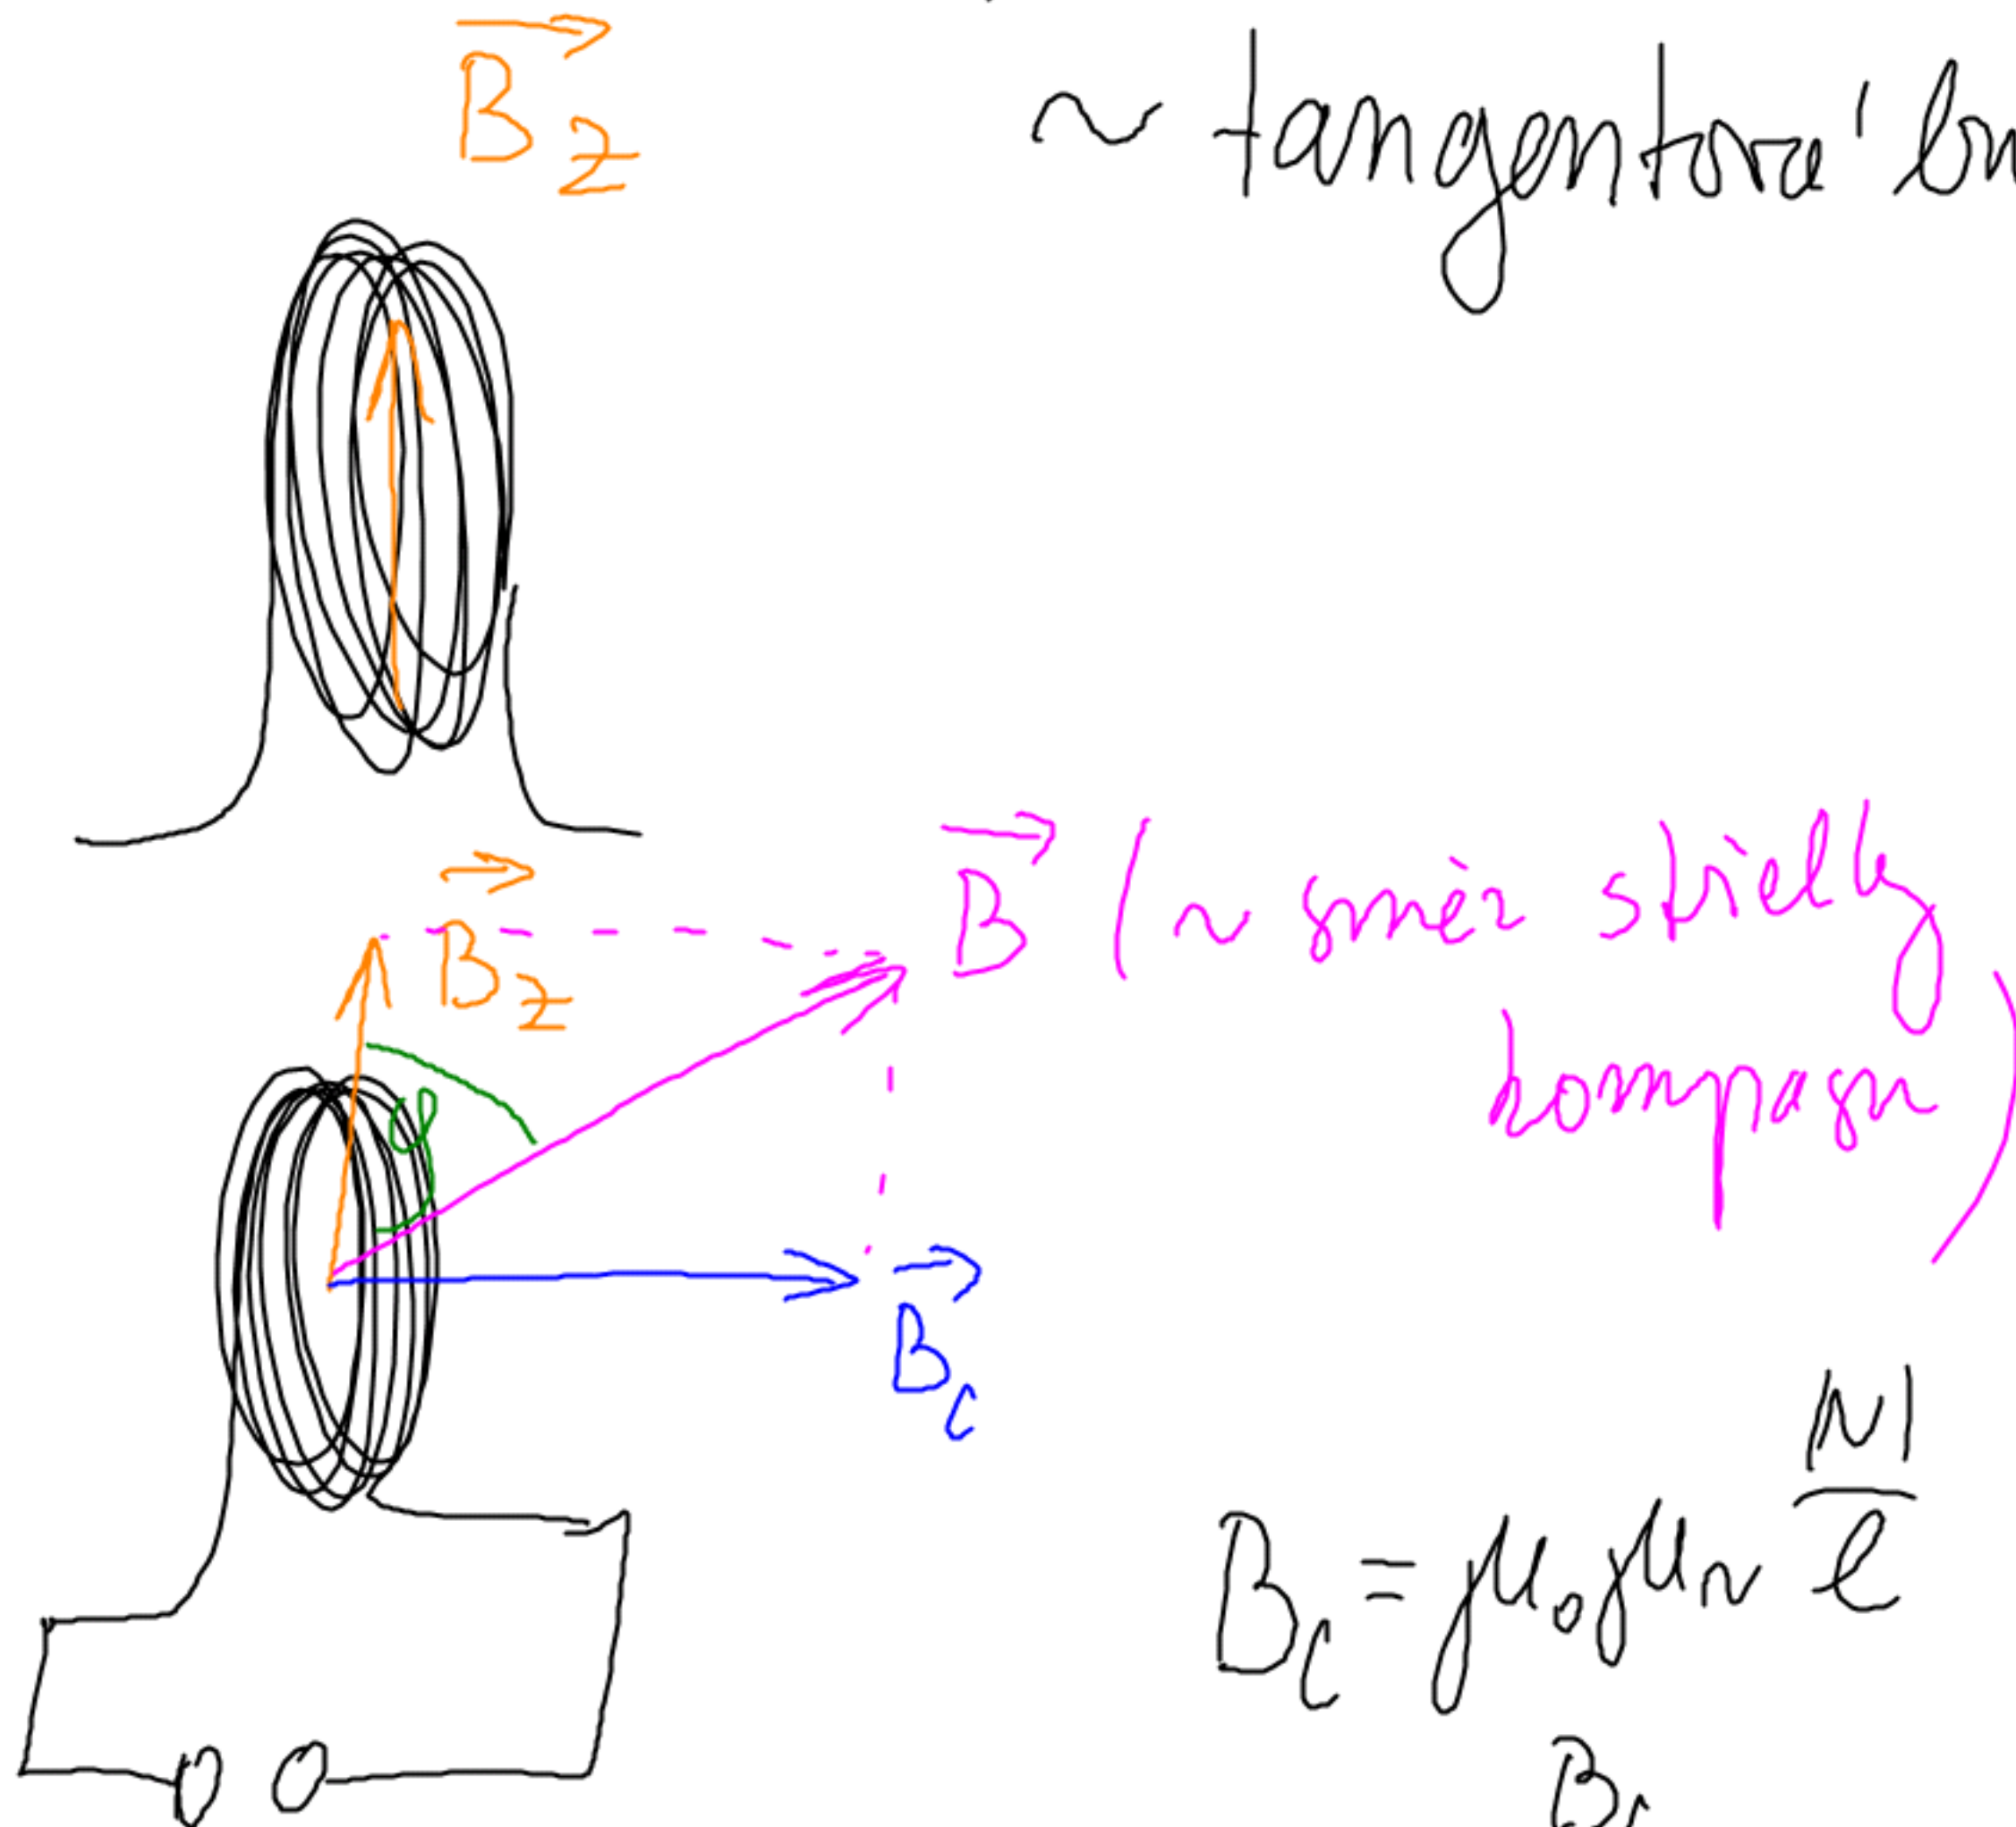 B⃗_Z
~ tangentová bu
B⃗ (~ směr střelky
kompasu)
B⃗_Z
φ
B⃗_C
B_C = μ₀μᵣ NI/ℓ
B